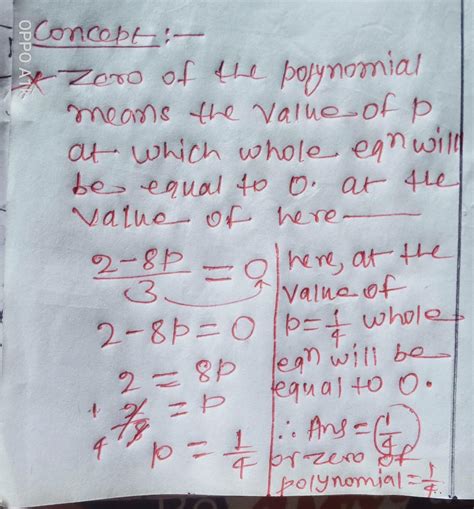 Concept :-
* Zero of the polynomial
means the value of p
at which whole eqn will
be equal to 0. at the
value of here ——
2-8p/3 = 0
2-8p = 0
2 = 8p
1 2/8 = p
4
p = 1/4
here, at the
value of
p = 1/4 whole
eqn will be
equal to 0.
∴ Ans = (1/4)
or zero of
polynomial = 1/4.
OPPO A